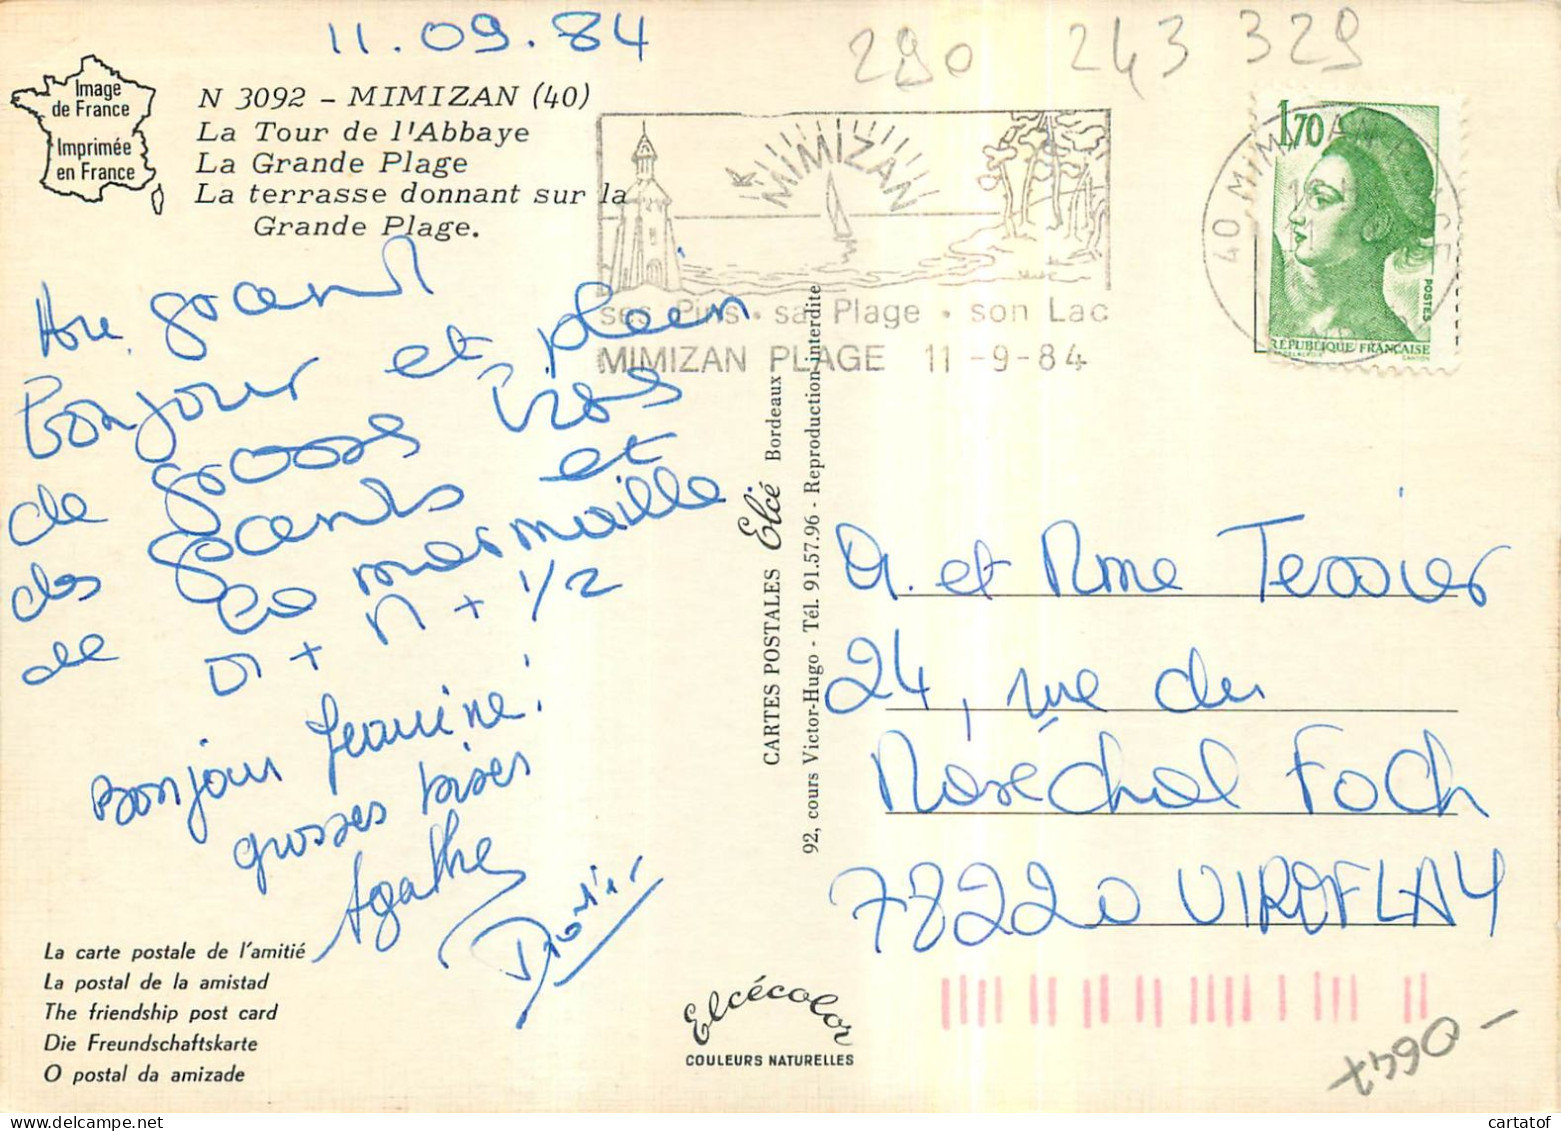 11.09.84
290 243 329
Image
de France
Imprimée
en France
N 3092 - MIMIZAN (40)
La Tour de l'Abbaye
La Grande Plage
La terrasse donnant sur la
Grande Plage.
MIMIZAN
ses Pins • sa Plage • son Lac
MIMIZAN PLAGE 11 -9-84
40 MIMIZAN PLAGE
1,70
POSTES
RÉPUBLIQUE FRANÇAISE
grand
Bonjour et plein
de grosses bises
des grands et
de la marmaille
M + N + 1/2
Bonjour Jeanine!
grosses bises
Agathe
M. et Mme Tessier
24, rue du
Maréchal Foch
78220 VIROFLAY
CARTES POSTALES Elcé Bordeaux
92, cours Victor-Hugo - Tél. 91.57.96 - Reproduction interdite
La carte postale de l'amitié
La postal de la amistad
The friendship post card
Die Freundschaftskarte
O postal da amizade
Elcécolor
COULEURS NATURELLES
cartatof